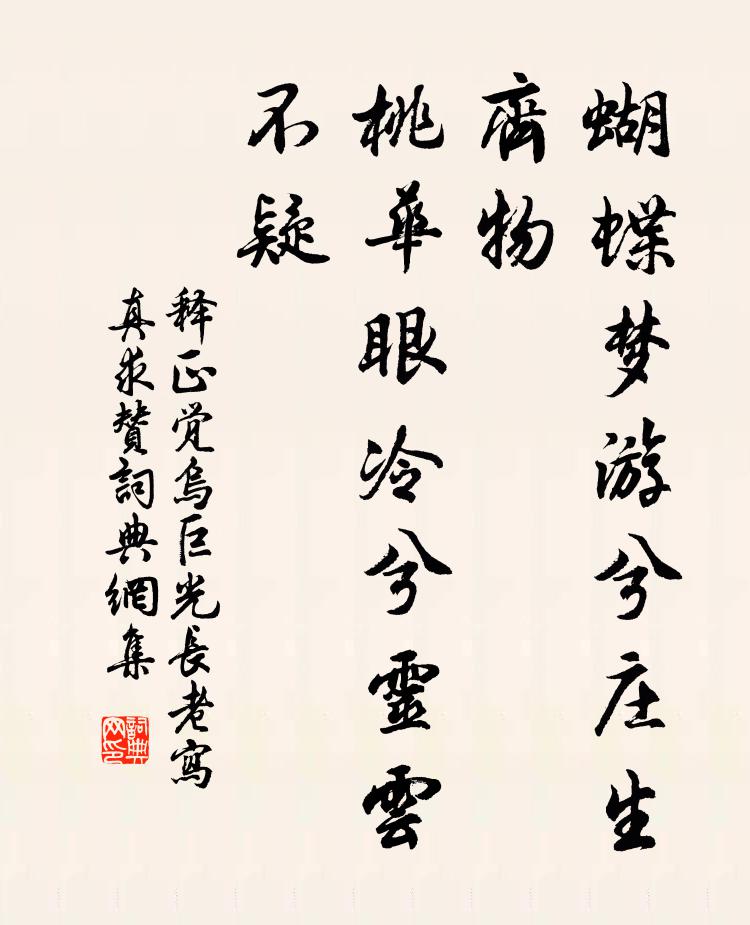 蝴蝶梦游兮庄生
齊物
桃華眼冷兮靈雲
不疑
释正觉烏巨光長老寫
真求赞詞典網集
詞典
网印